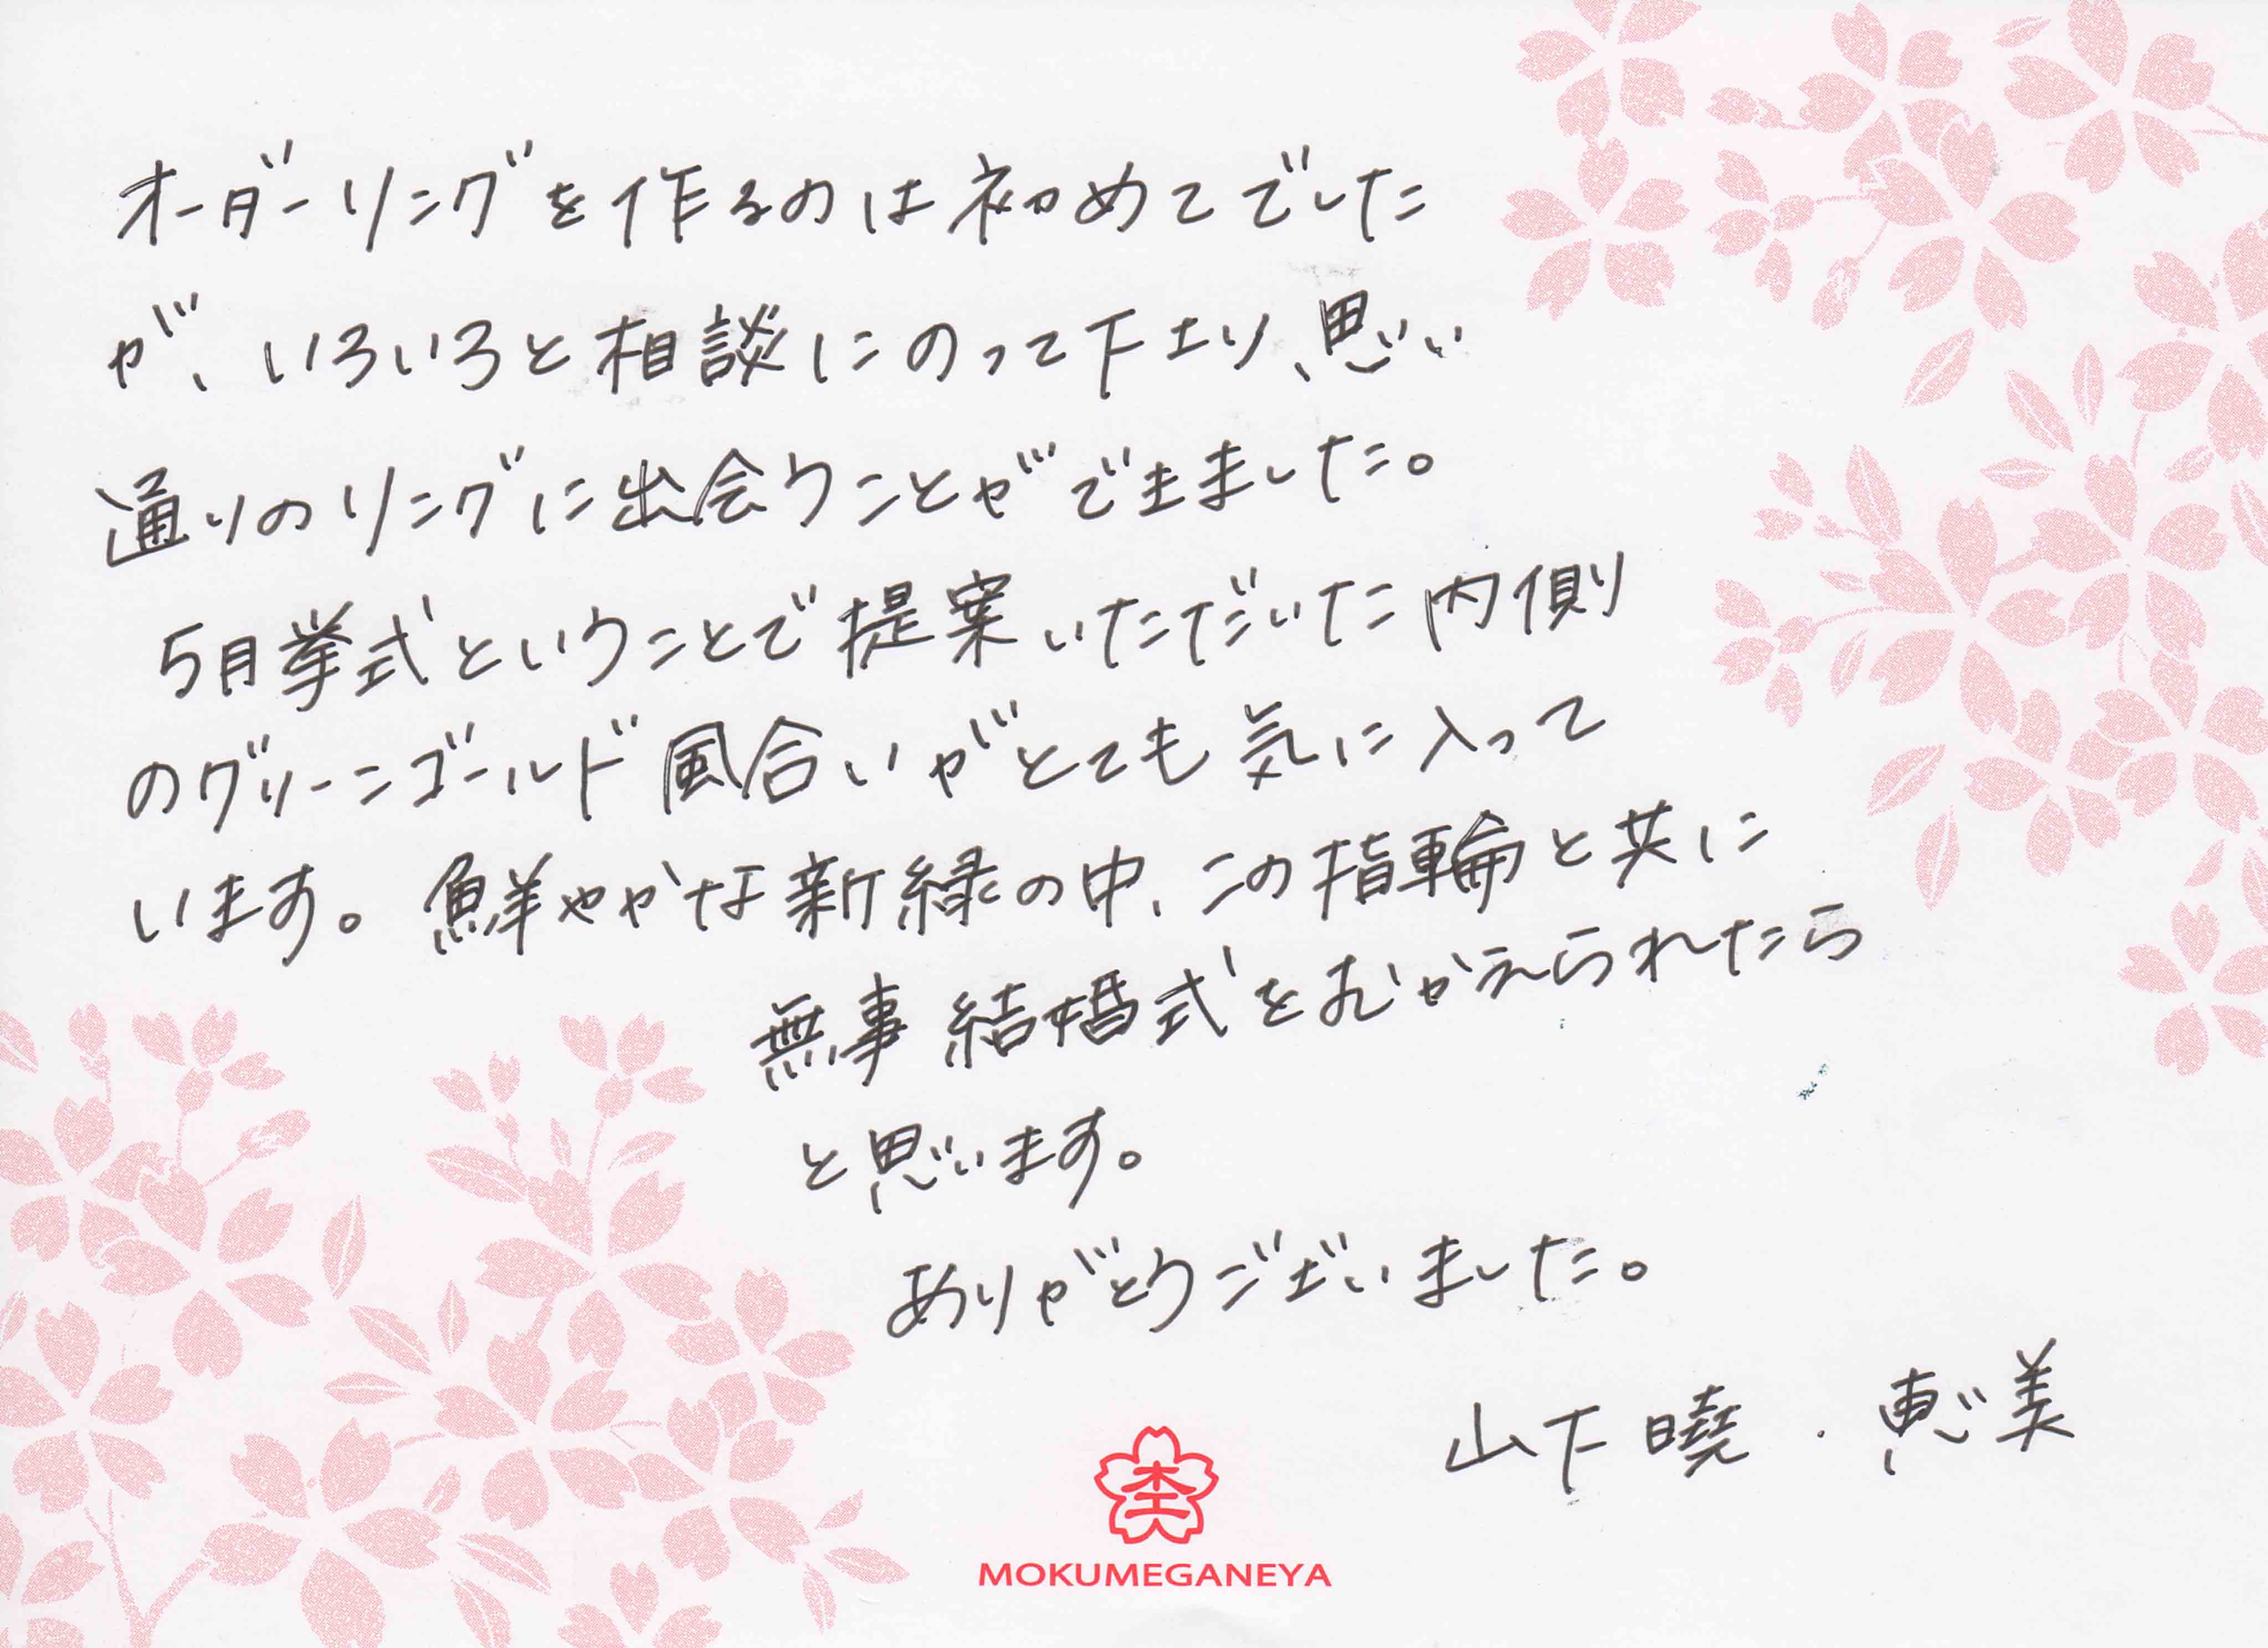 オーダーリングを作るのは初めてでした
が、いろいろと相談にのって下さり、思い
通りのリングに出会うことができました。
5月挙式ということで提案いただいた内側
のグリーンゴールド風合いがとても気に入って
います。鮮やかな新緑の中、この指輪と共に
無事結婚式をむかえられたら
と思います。
ありがとうございました。
山下暁・恵美
杢
MOKUMEGANEYA